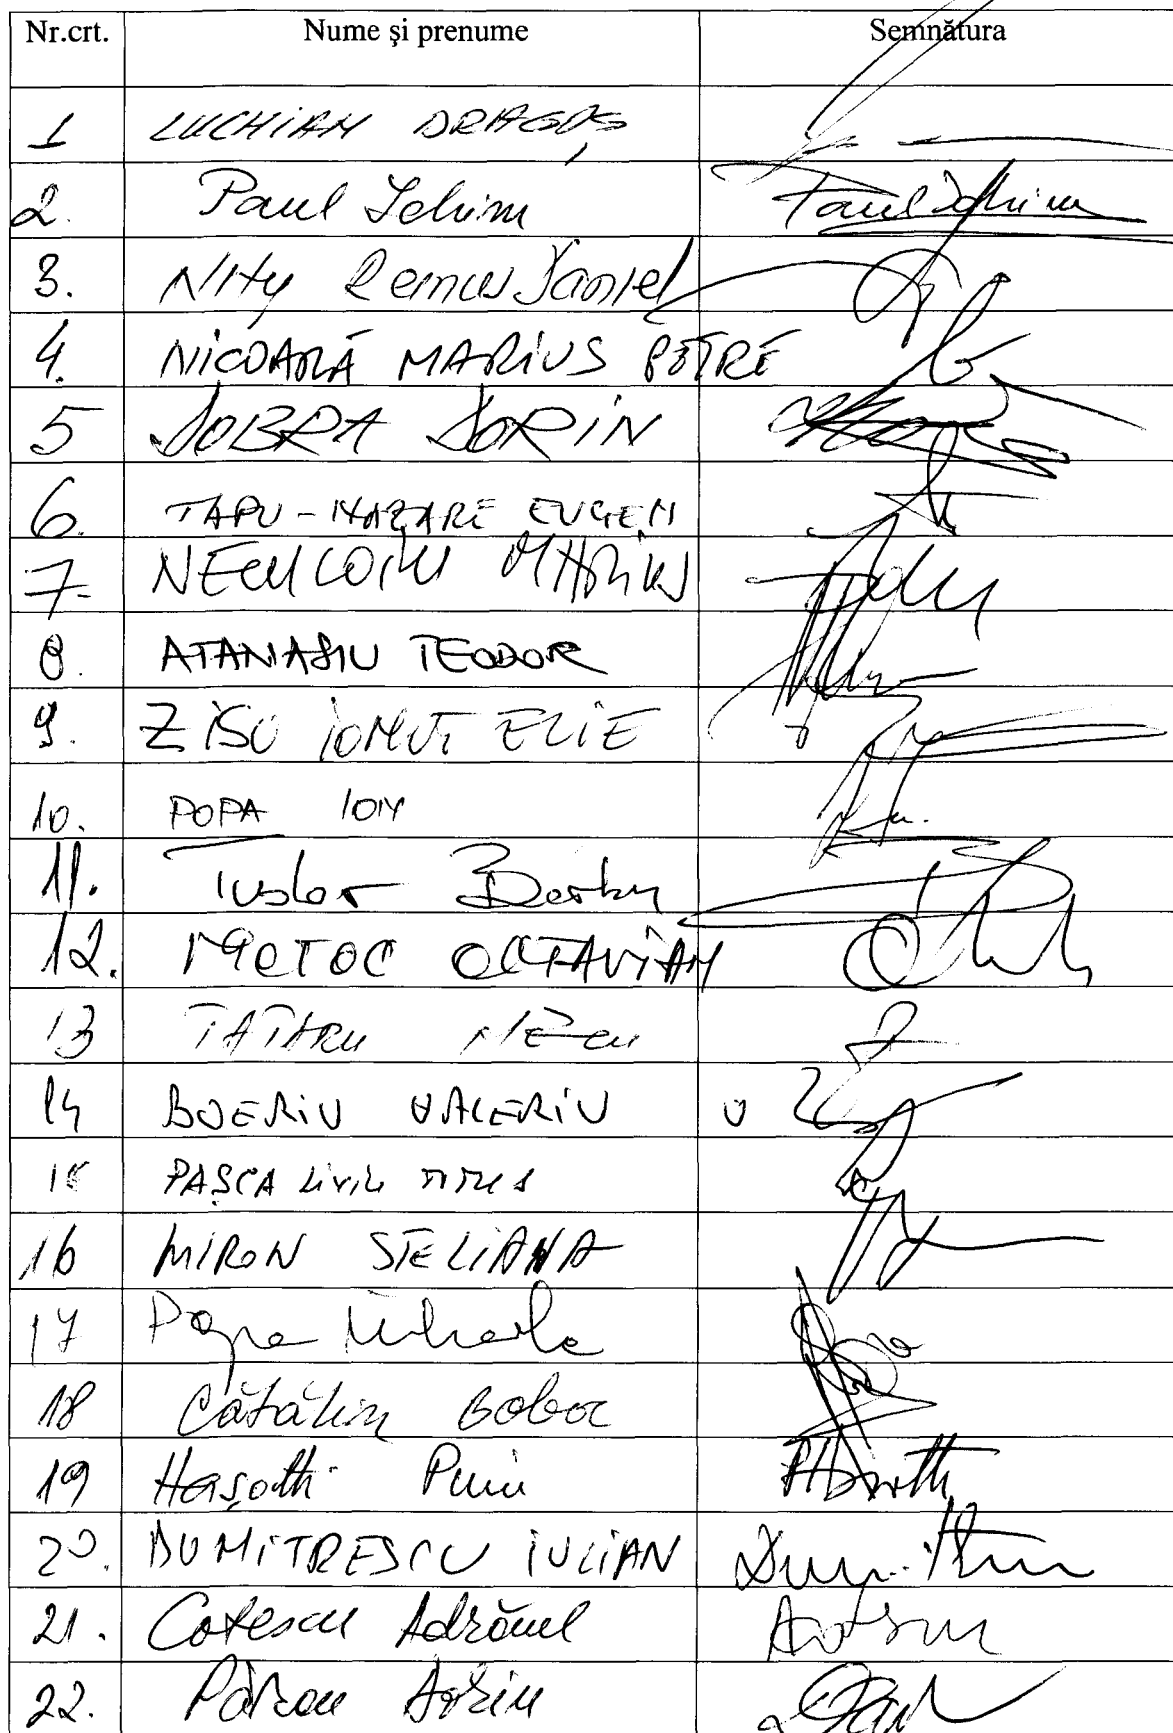 Nr.crt. Nume şi prenume Semnătura
1 LUCHIAN DRAGOŞ
2. Paul Ichim Paul Ichim
3. Niţu Remus Daniel
4. NICOARĂ MARIUS PETRE
5 DOBRA DORIN
6. TAPU-NAZARE EUGEN
7. NECULOIU MARIUS
8. ATANASIU TEODOR
9. ZISU IONUŢ ELIE
10. POPA ION
11. Tudor Barbu
12. MOTOC OCTAVIAN
13 TĂTARU NELU
14 BOERIU VALERIU
15 PAŞCA LIVIU TITUS
16 MIRON STELIANA
17 Popa Mihaela
18 Cătălin Boboc
19 Haşotti Puiu
20. DUMITRESCU IULIAN
21. Cotescu Adrănel
22. Păran Dorin